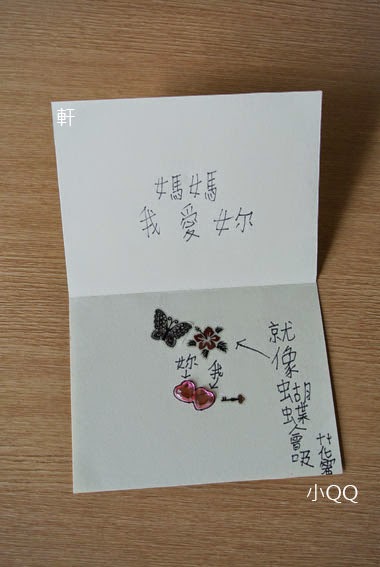 軒
媽媽
我愛妳
妳 我
就像蝴蝶會吸
花蜜
小QQ